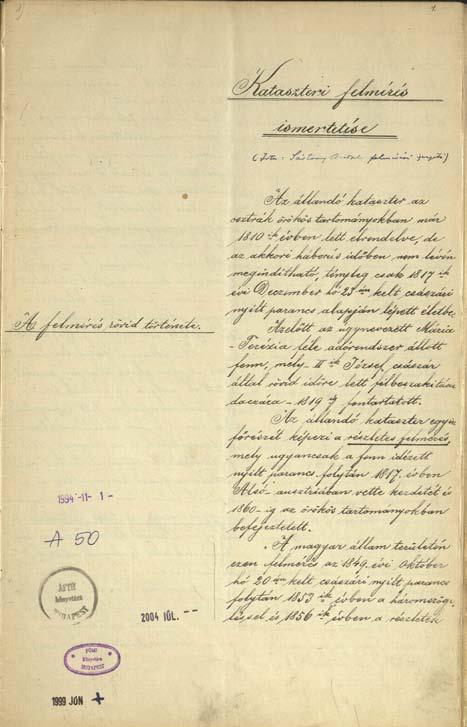 1.
Kataszteri felmérés
ismertetése
(Írta: felmérési
Az állandó kataszter az
osztrák örökös tartományokban már
1810 ik évben lett elrendelve, de
az akkori háborús időben nem lévén
megindítható, tényleg csak 1817 ik
évi Deczember hó 23 án kelt császári
nyílt parancs alapján lépett életbe
A felmérés rövid története.
Azelőtt az úgynevezett Mária
-Terézia féle adórendszer állott
fenn, mely II ik József császár
által rövid időre lett félbeszakítása
daczára - 1819 ig fentartatott.
Az állandó kataszter egyik
főrészét képezi a részletes felmérés,
mely ugyancsak a fenn idézett
nyílt parancs folytán 1817. évben
Alsó-ausztriában vette kezdetét és
1860-ig az örökös tartományokban
befejeztetett.
A magyar állam területén
ezen felmérés az 1849. évi Október
hó 20 án kelt császári nyílt parancs
folytán 1853 ik évben a háromszöge-
léssel és 1856 ik évben a részletek
1994 -11- 1-
A 50
ÁFTH
könyvtára
BUDAPEST
2004 JÚL. --
FÖMI
Könyvtára
BUDAPEST
1999 JÚN